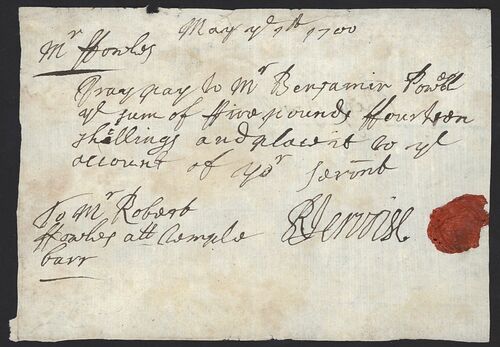 May ye 7th 1700
Mr ffowles
Pray pay to Mr Benjamin Powell
ye sum of ffive pounds ffourteen
shillings and place it to ye
account of yor servnt
RJervoise
To Mr Robert
ffowles att temple
barr